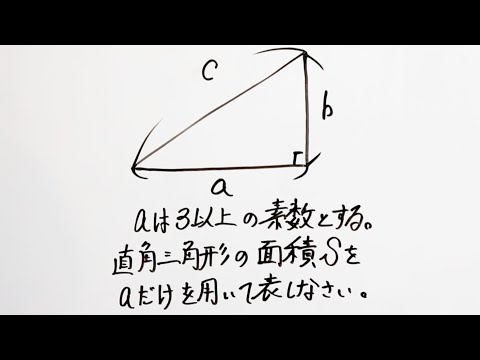 c
b
a
aは3以上の素数とする。
直角三角形の面積Sを
aだけを用いて表しなさい。